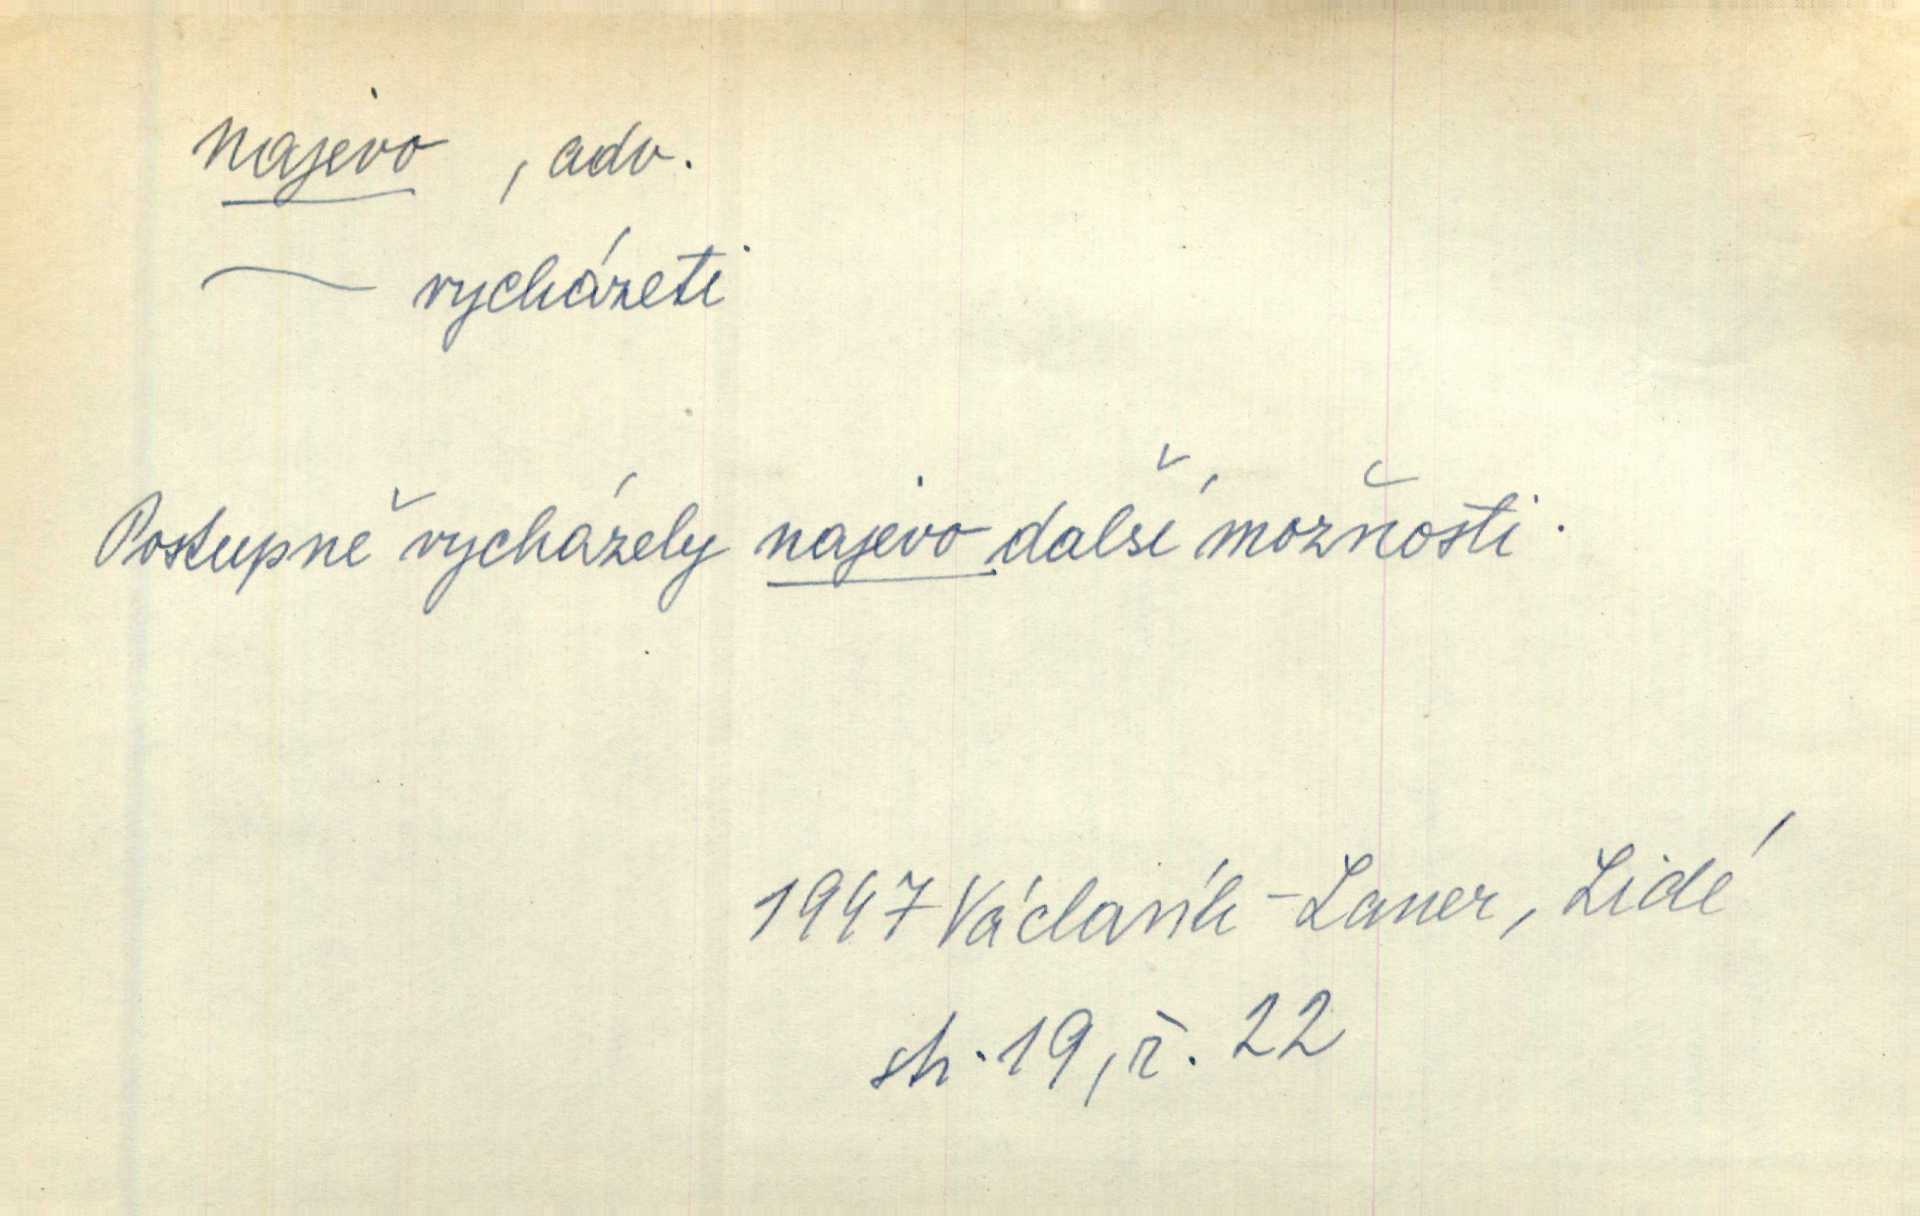 najevo, adv.
~ vycházeti
Postupně vycházely najevo další možnosti.
1947 Václavík - Lauer, Lidé
str. 19, ř. 22